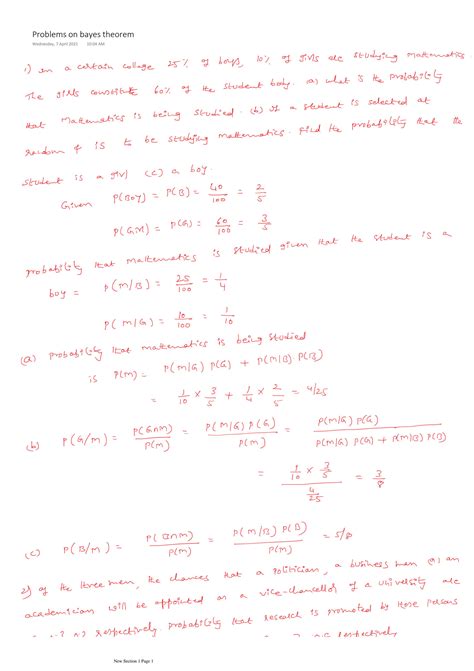 Problems on bayes theorem
Wednesday, 7 April 2021 10:04 AM
1) In a certain college 25% of boys, 10% of girls are studying mathematics
The girls constitute 60% of the student body. a) what is the probability
that Mathematics is being studied. (b) If a student is selected at
random & is to be studying mathematics. find the probability that the
student is a girl (c) a boy.
Given P(Boy) = P(B) = 40/100 = 2/5
P(Girl) = P(G) = 60/100 = 3/5
probability that mathematics is studied given that the student is a
boy = P(M/B) = 25/100 = 1/4
P(M/G) = 10/100 = 1/10
(a) probability that mathematics is being studied
is P(M) = P(M/G) P(G) + P(M/B) P(B)
= 1/10 × 3/5 + 1/4 × 2/5 = 4/25
(b) P(G/M) = P(G∩M)/P(M) = P(M/G) P(G)/P(M) = P(M/G) P(G)/P(M/G) P(G) + P(M/B) P(B)
= 1/10 × 3/5 / 4/25 = 3/8
(c) P(B/M) = P(B∩M)/P(M) = P(M/B) P(B)/P(M) = 5/8
2) of the three men, the chances that a politician, a business men (or) an
academician will be appointed as a vice-chancellor of a university are
respectively. probability that research is promoted by these persons
respectively
New Section 1 Page 1